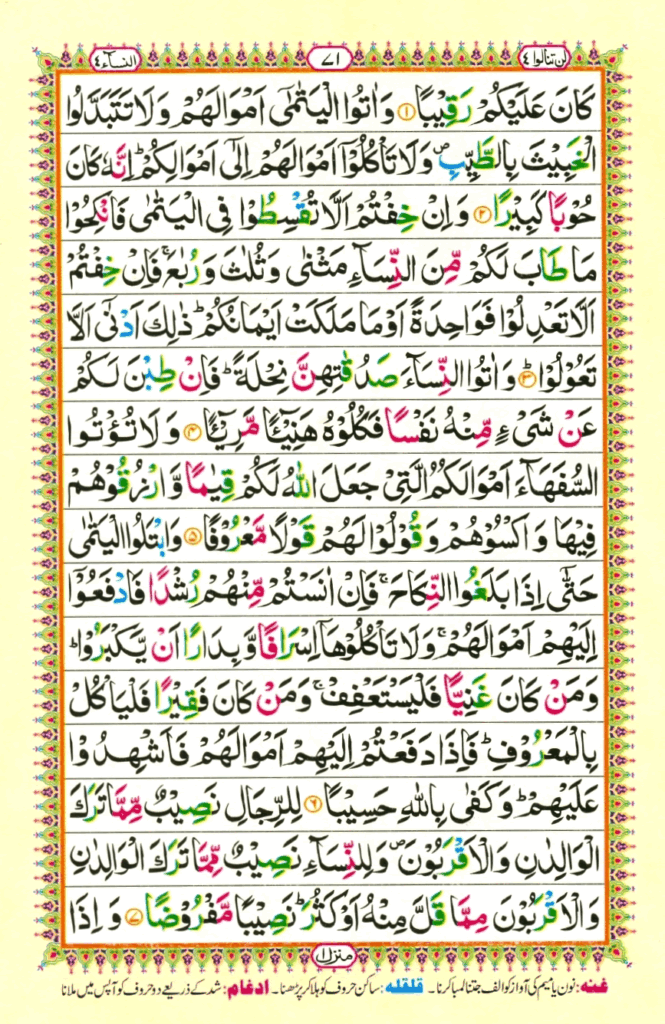 لن تنالوا ٤ ٧١ النساء ٤
كَانَ عَلَيْكُمْ رَقِيْبًا ﴿۱﴾ وَاٰتُوا الْيَتٰمٰٓى اَمْوَالَهُمْ وَلَا تَتَبَدَّلُوا
الْخَبِيْثَ بِالطَّيِّبِ ص وَلَا تَاْكُلُوْٓا اَمْوَالَهُمْ اِلٰٓى اَمْوَالِكُمْ ؕ اِنَّهٗ كَانَ
حُوْبًا كَبِيْرًا ﴿۲﴾ وَاِنْ خِفْتُمْ اَلَّا تُقْسِطُوْا فِى الْيَتٰمٰى فَانْكِحُوْا
مَا طَابَ لَكُمْ مِّنَ النِّسَآءِ مَثْنٰى وَثُلٰثَ وَرُبٰعَ ۚ فَاِنْ خِفْتُمْ
اَلَّا تَعْدِلُوْا فَوَاحِدَةً اَوْ مَا مَلَكَتْ اَيْمَانُكُمْ ؕ ذٰلِكَ اَدْنٰٓى اَلَّا
تَعُوْلُوْا ؕ ﴿۳﴾ وَاٰتُوا النِّسَآءَ صَدُقٰتِهِنَّ نِحْلَةً ؕ فَاِنْ طِبْنَ لَكُمْ
عَنْ شَىْءٍ مِّنْهُ نَفْسًا فَكُلُوْهُ هَنِيْٓئًا مَّرِيْٓئًا ﴿۴﴾ وَلَا تُؤْتُوا
السُّفَهَآءَ اَمْوَالَكُمُ الَّتِىْ جَعَلَ اللّٰهُ لَكُمْ قِيٰمًا وَّارْزُقُوْهُمْ
فِيْهَا وَاكْسُوْهُمْ وَقُوْلُوْا لَهُمْ قَوْلًا مَّعْرُوْفًا ﴿۵﴾ وَابْتَلُوا الْيَتٰمٰى
حَتّٰٓى اِذَا بَلَغُوا النِّكَاحَ ۚ فَاِنْ اٰنَسْتُمْ مِّنْهُمْ رُشْدًا فَادْفَعُوْٓا
اِلَيْهِمْ اَمْوَالَهُمْ ۚ وَلَا تَاْكُلُوْهَآ اِسْرَافًا وَّبِدَارًا اَنْ يَّكْبَرُوْا ؕ
وَمَنْ كَانَ غَنِيًّا فَلْيَسْتَعْفِفْ ۚ وَمَنْ كَانَ فَقِيْرًا فَلْيَاْكُلْ
بِالْمَعْرُوْفِ ؕ فَاِذَا دَفَعْتُمْ اِلَيْهِمْ اَمْوَالَهُمْ فَاَشْهِدُوْا
عَلَيْهِمْ ؕ وَكَفٰى بِاللّٰهِ حَسِيْبًا ﴿۶﴾ لِلرِّجَالِ نَصِيْبٌ مِّمَّا تَرَكَ
الْوَالِدٰنِ وَالْاَقْرَبُوْنَ ص وَلِلنِّسَآءِ نَصِيْبٌ مِّمَّا تَرَكَ الْوَالِدٰنِ
وَالْاَقْرَبُوْنَ مِمَّا قَلَّ مِنْهُ اَوْ كَثُرَ ؕ نَصِيْبًا مَّفْرُوْضًا ﴿۷﴾ وَاِذَا
منزل ١
غنه: نون یا میم کی آواز کو الف جتنا لمبا کرنا۔ قلقله: ساکن حروف کو ہلا کر پڑھنا۔ ادغام: شد کے ذریعے دو حروف کو آپس میں ملانا